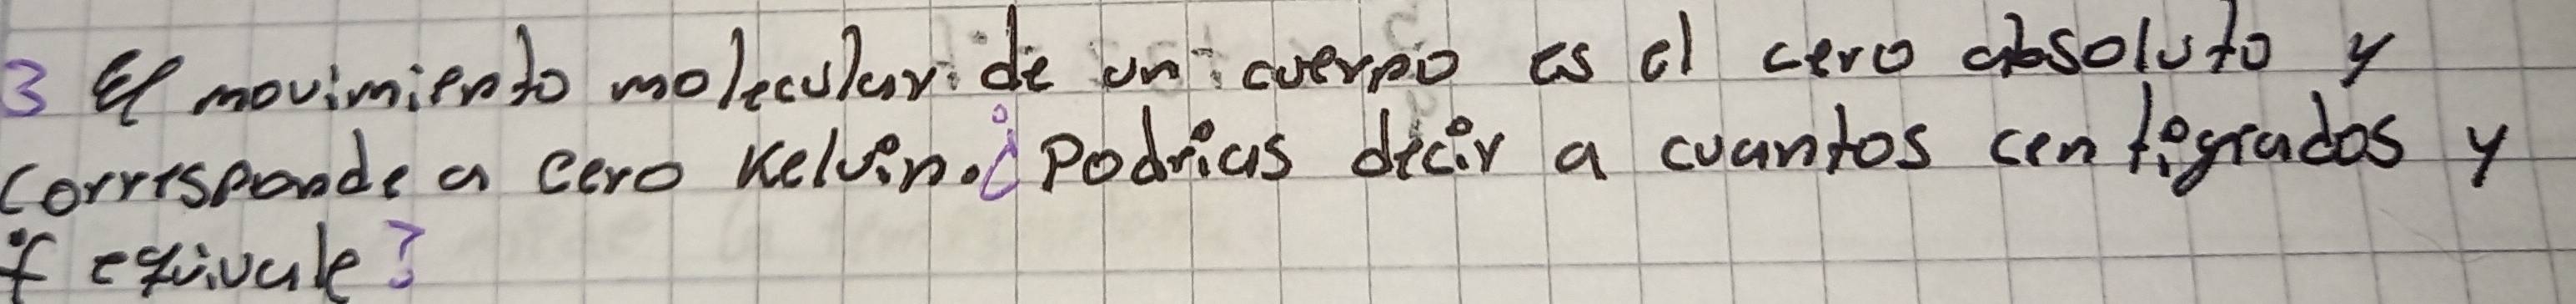 3 El movimiento molecular de un cuerpo es el cero absoluto y
corresponde a cero Kelvin. ¿Podrias decir a cuantos centigrados y
°f equivale?